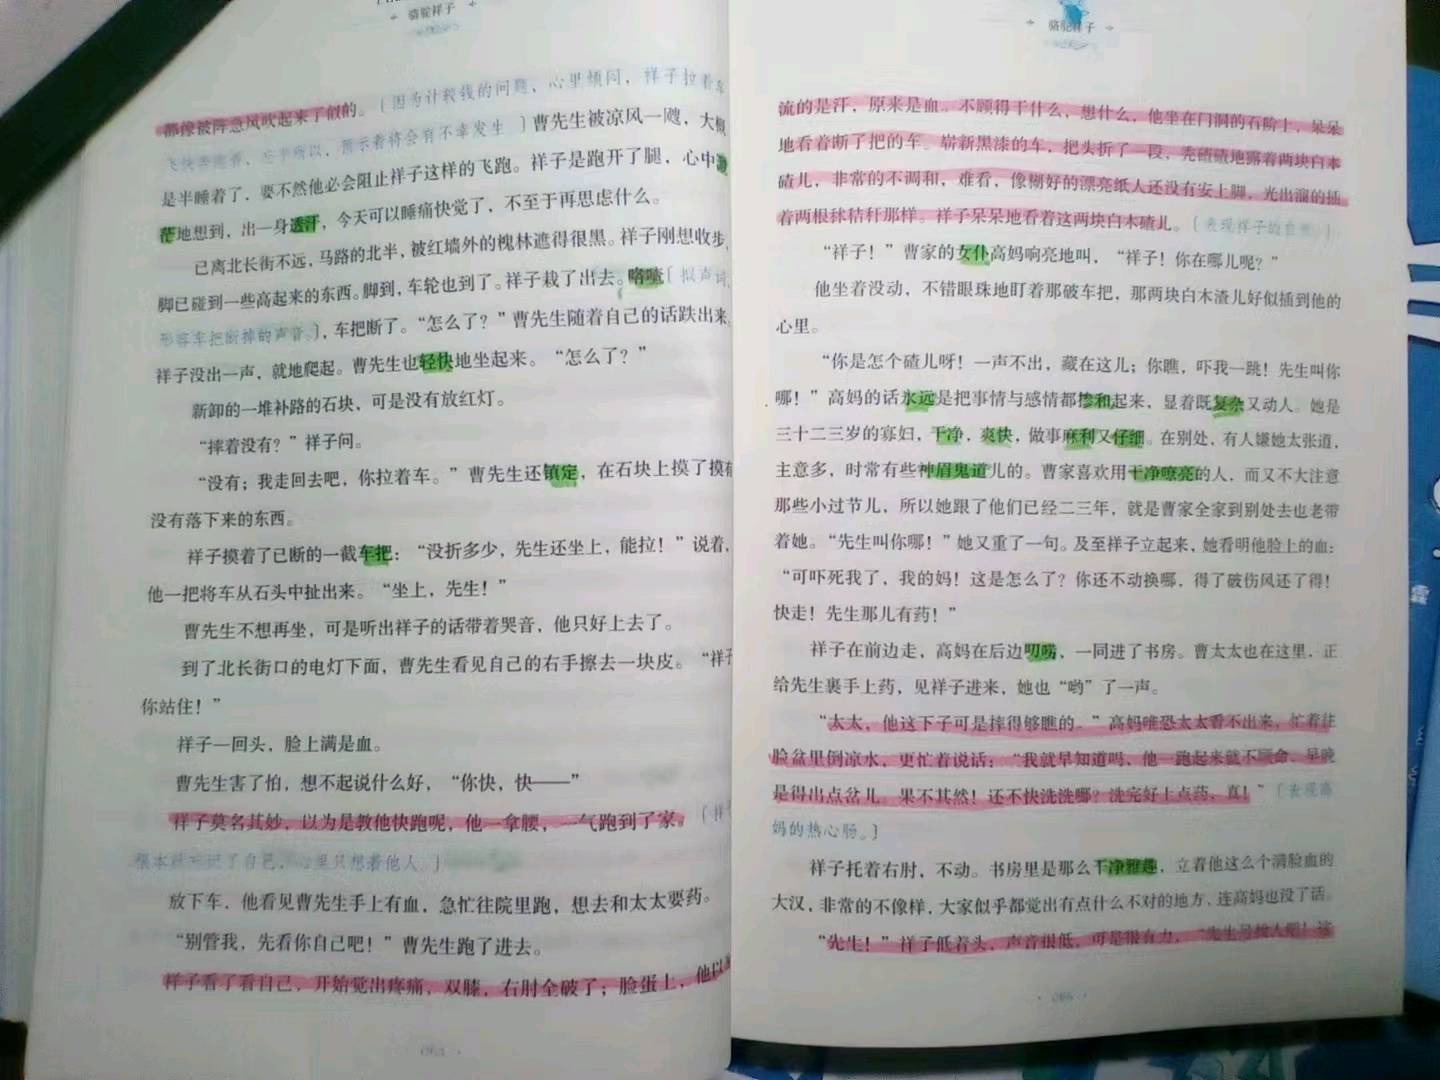 骆驼祥子
都像被阵急风吹起来了似的。〔因为计较钱的问题，心里烦闷，祥子拉着车
飞快去跑着，忘乎所以，预示着将会有不幸发生〕曹先生被凉风一飕，大概
是半睡着了，要不然他必会阻止祥子这样的飞跑。祥子是跑开了腿，心中
茫地想到，出一身透汗，今天可以睡痛快觉了，不至于再思虑什么。
已离北长街不远，马路的北半，被红墙外的槐林遮得很黑。祥子刚想收步，
脚已碰到一些高起来的东西。脚到，车轮也到了。祥子栽了出去。咯喳〔拟声词，
形容车把断掉的声音。〕，车把断了。“怎么了？”曹先生随着自己的话跌出来。
祥子没出一声，就地爬起。曹先生也轻快地坐起来。“怎么了？”
新卸的一堆补路的石块，可是没有放红灯。
“摔着没有？”祥子问。
“没有；我走回去吧，你拉着车。”曹先生还镇定，在石块上摸了摸有
没有落下来的东西。
祥子摸着了已断的一截车把：“没折多少，先生还坐上，能拉！”说着，
他一把将车从石头中扯出来。“坐上，先生！”
曹先生不想再坐，可是听出祥子的话带着哭音，他只好上去了。
到了北长街口的电灯下面，曹先生看见自己的右手擦去一块皮。“祥子
你站住！”
祥子一回头，脸上满是血。
曹先生害了怕，想不起说什么好，“你快，快——”
祥子莫名其妙，以为是教他快跑呢，他一拿腰，一气跑到了家。〔
根本就忘记了自己，心里只想着他人。〕
放下车，他看见曹先生手上有血，急忙往院里跑，想去和太太要药。
“别管我，先看你自己吧！”曹先生跑了进去。
祥子看了看自己，开始觉出疼痛，双膝，右肘全破了；脸蛋上，他以
骆驼祥子
流的是汗，原来是血。不顾得干什么，想什么，他坐在门洞的石阶上，呆呆
地看着断了把的车。崭新黑漆的车，把头折了一段，秃碴碴地露着两块白木
碴儿，非常的不调和，难看，像糊好的漂亮纸人还没有安上脚，光出溜的插
着两根秫秸秆那样。祥子呆呆地看着这两块白木碴儿。〔表现祥子的自责。〕
“祥子！”曹家的女仆高妈响亮地叫，“祥子！你在哪儿呢？”
他坐着没动，不错眼珠地盯着那破车把，那两块白木渣儿好似插到他的
心里。
“你是怎个碴儿呀！一声不出，藏在这儿；你瞧，吓我一跳！先生叫你
哪！”高妈的话永远是把事情与感情都掺和起来，显着既复杂又动人。她是
三十二三岁的寡妇，干净，爽快，做事麻利又仔细。在别处，有人嫌她太张道，
主意多，时常有些神眉鬼道儿的。曹家喜欢用干净嘹亮的人，而又不大注意
那些小过节儿，所以她跟了他们已经二三年，就是曹家全家到别处去也老带
着她。“先生叫你哪！”她又重了一句。及至祥子立起来，她看明他脸上的血：
“可吓死我了，我的妈！这是怎么了？你还不动换哪，得了破伤风还了得！
快走！先生那儿有药！”
祥子在前边走，高妈在后边叨唠，一同进了书房。曹太太也在这里，正
给先生裹手上药，见祥子进来，她也“哟”了一声。
“太太，他这下子可是摔得够瞧的。”高妈唯恐太太看不出来，忙着往
脸盆里倒凉水，更忙着说话：“我就早知道吗，他一跑起来就不顾命，早晚
是得出点岔儿。果不其然！还不快洗洗哪？洗完好上点药，真！”〔表现高
妈的热心肠。〕
祥子托着右肘，不动。书房里是那么干净雅趣，立着他这么个满脸血的
大汉，非常的不像样，大家似乎都觉出有点什么不对的地方，连高妈也没了话。
“先生！”祥子低着头，声音很低，可是很有力，“先生另找人吧！这